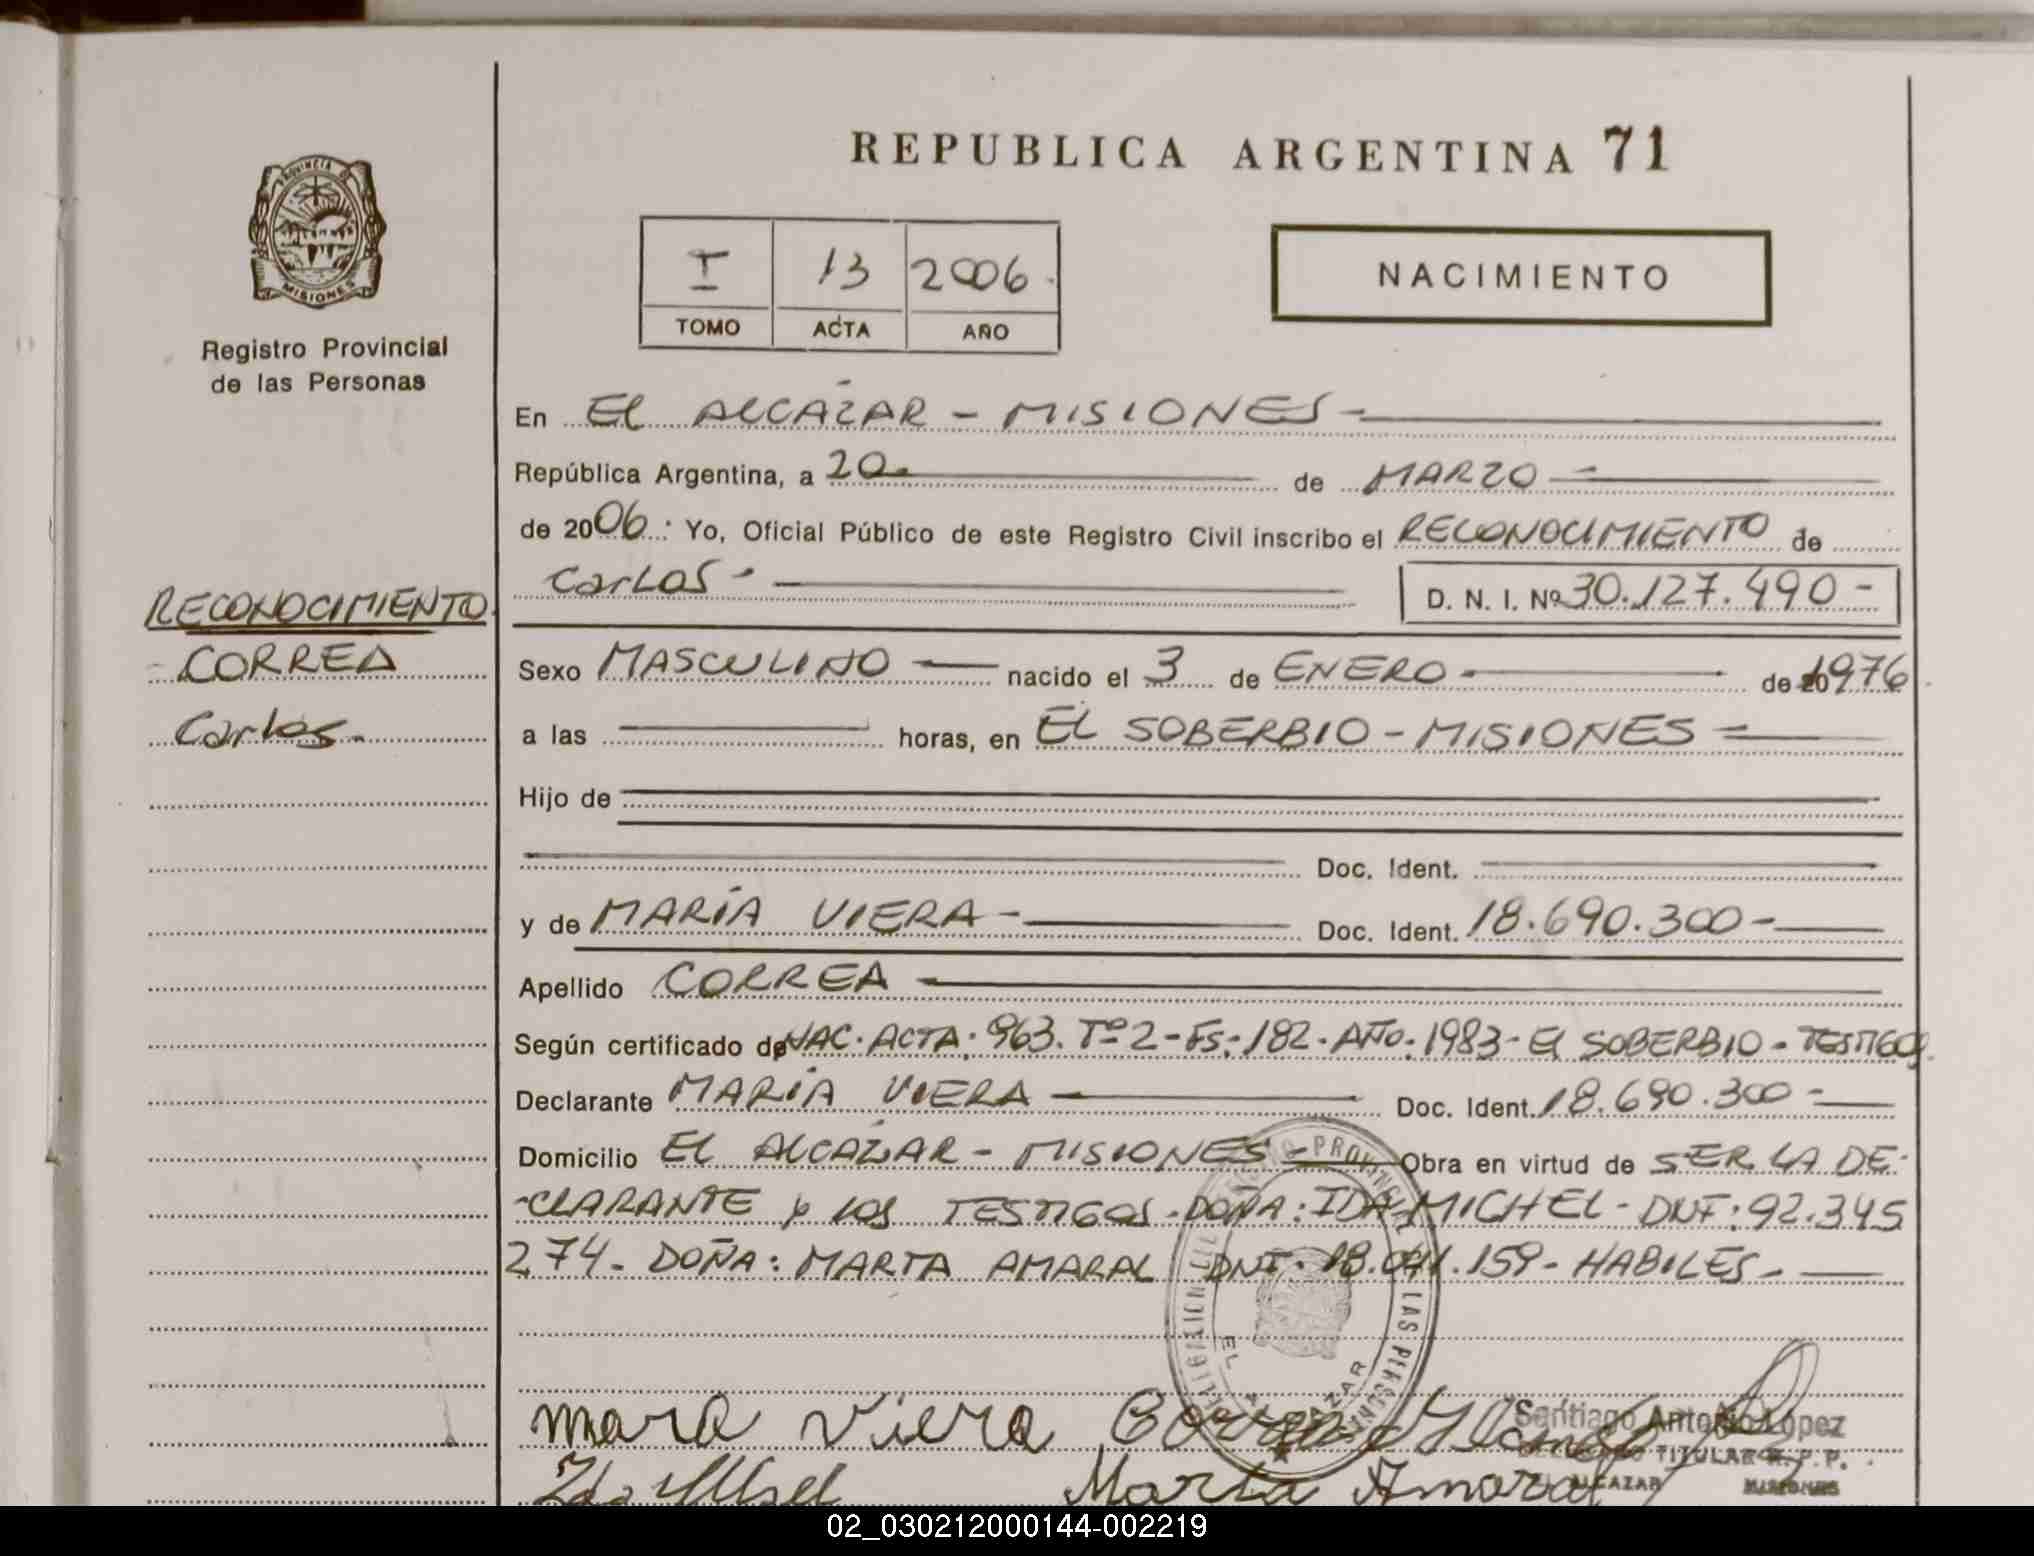 REPUBLICA ARGENTINA 71
PROVINCIA DE
MISIONES
Registro Provincial
de las Personas
I 13 2006.
TOMO ACTA AÑO
NACIMIENTO
En El ALCÁZAR - MISIONES -
República Argentina, a 20. de MARZO -
de 2006.: Yo, Oficial Público de este Registro Civil inscribo el RECONOCIMIENTO de
Carlos - D. N. I. Nº 30.127.490 -
RECONOCIMIENTO.
- CORREA
Carlos.-
Sexo MASCULINO - nacido el 3 de ENERO - de 20 1976
a las horas, en EL SOBERBIO - MISIONES -
Hijo de
Doc. Ident.
y de MARÍA VIERA - Doc. Ident. 18.690.300 -
Apellido CORREA -
Según certificado de NAC. ACTA. 963. Tº 2 - Fs. - 182 - AÑO. 1983 - El SOBERBIO - TESTIGOS
Declarante MARÍA VIERA - Doc. Ident. 18.690.300 -
Domicilio EL ALCÁZAR - MISIONES - Obra en virtud de SER LA DE-
-CLARANTE y LOS TESTIGOS - DOÑA: IDA MICHEL - DNI: 92.345
274 - DOÑA: MARTA AMARAL DNI: 18.041.159 - HABILES -
REGISTRO PROVINCIAL DE LAS PERSONAS
EL ALCAZAR
mara viera Correa
Santiago Antonio López
TITULAR R. P. P.
EL ALCAZAR MISIONES
Marta Amaral
02_030212000144-002219